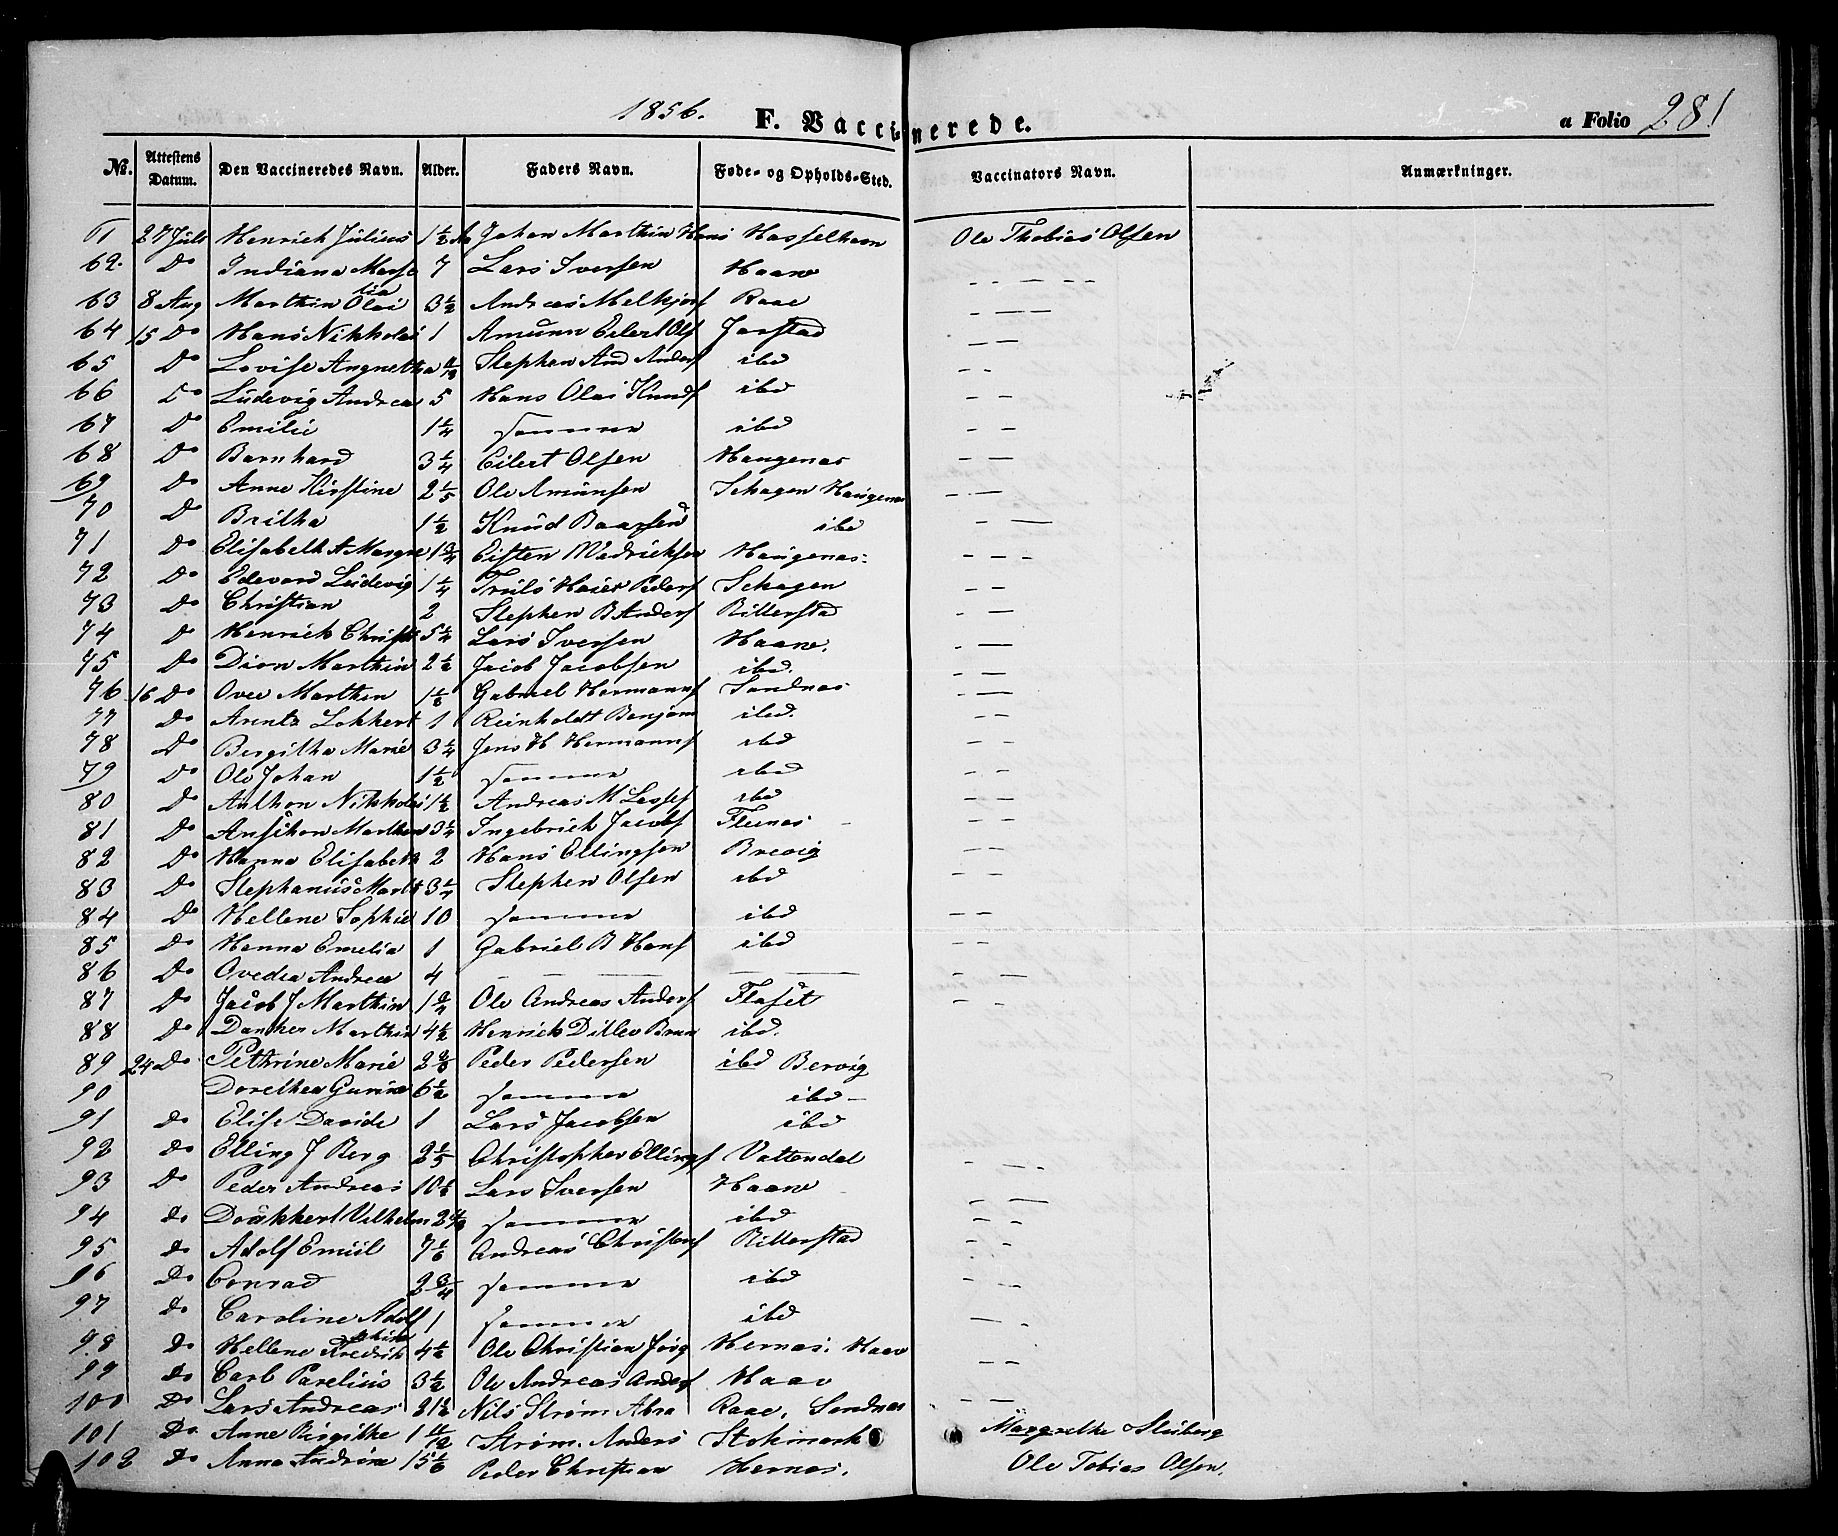 1856. F. Vaccinerede. a Folio 281
No. Attestens Datum. Den Vaccineredes Navn. Alder. Faders Navn. Føde- og Opholds-Sted. Vaccinators Navn. Anmærkninger.
61 27 Juli Henrich Julius 1 1/2 Johan Marthin Hans Hasselhavn Ole Thobias Olsen
62. Do Indiana 7 Lars Iversen Haave
63 8 Aug Marthin Olai 3 1/2 Andreas Raae
64 15 Do Hans Nikholai 1 Amunn Eilert Ols Jarstad
65 Do Lovise Angnetha Stephen And Anders ibd
66 Do Ludevig Andreas 5 Hans Olai Knuds ibd
67 Do Emilie 1 1/4 samme ibd
68 Do Barnhard 3 1/4 Eilert Olsen Haugenas
69 Do Anne Kirstine 2 1/5 Ole Amunsen Schagen Haugenas
70 Do Britha 1 1/2 Knud Baarsen ibd
71 Do Elisabeth A Margre 1 3/4 Eisten Madricksen Haugenas
72 Do Edevard Ludevig 1 1/4 Truls Peders Schagen
73 Do Christian 2 Stephen B Anders Ritterstad
74 Do Henrich Christi 5 1/4 Lars Iversen Haave.
75 Do Dion Marthin 2 1/2 Jacob Jacobsen ibd.
76 16 Do Ovee Marthin 1 1/6 Gabriel Hermanns Sandnas
77 Do Arntz Lokkert 1 Reinholdt Benjam ibd.
78 Do Bergitha Marie 3 1/4 Jens H Hermanns ibd
79 Do Ole Johan 1 1/2 samme ibd
80 Do Anthon Nikholai 1 1/2 Andreas M ibd
81 Do Marthin 3 1/4 Ingebrick Jacobs Fleenas
82 Do Hanna Elisabeth 2 Hans Ellingsen Brevig
83 Do Stephanus Marth 3 1/4 Stephen Olsen ibd
84 Do Hellene Sophie 10 samme ibd
85 Do Hanna Emelia 1 Gabriel B Hans ibd
86 Do Ovedia Andrea 4
87 Do Jacob J Marthin 1 3/4 Ole Andreas Anders Flaset
88 Do Danker Marthin 4 1/2 Henrich Ditlev Brun ibd.
89 24 Do Pethrine Marie Peder Pedersen ibd Bervig
90 Dorethea 6 1/2 samme ibd
91 do Elise Davide 1 Lars Jacobsen ibd
92 do Elling J Berg 2 2/5 Christopher Ellings Vattendal
93 Do Peder Andreas Lars Iversen Haave
94 do Vilhelm samme ibd
95 do Adolf Emiil 7 1/6 Andreas Christens Ritterstad
96 Do Conrad 2 3/4 samme ibd
97 do Caroline Adolf 1 samme ibd
98 do Hellene Fredrik 4 1/2 Ole Christian Jørg Hernas. Haav
99 do Carl Parelius 3 1/2 Ole Andreas Anders Haav
100 Do Lars Andreas Nils Strøm Abra Raae, Sandnas
101 Do Anne Birgithe Strøm. Anders Stokmark Margrethe
102 do Anna 15 Peder Christian Hernas. Ole Tobias Olsen.